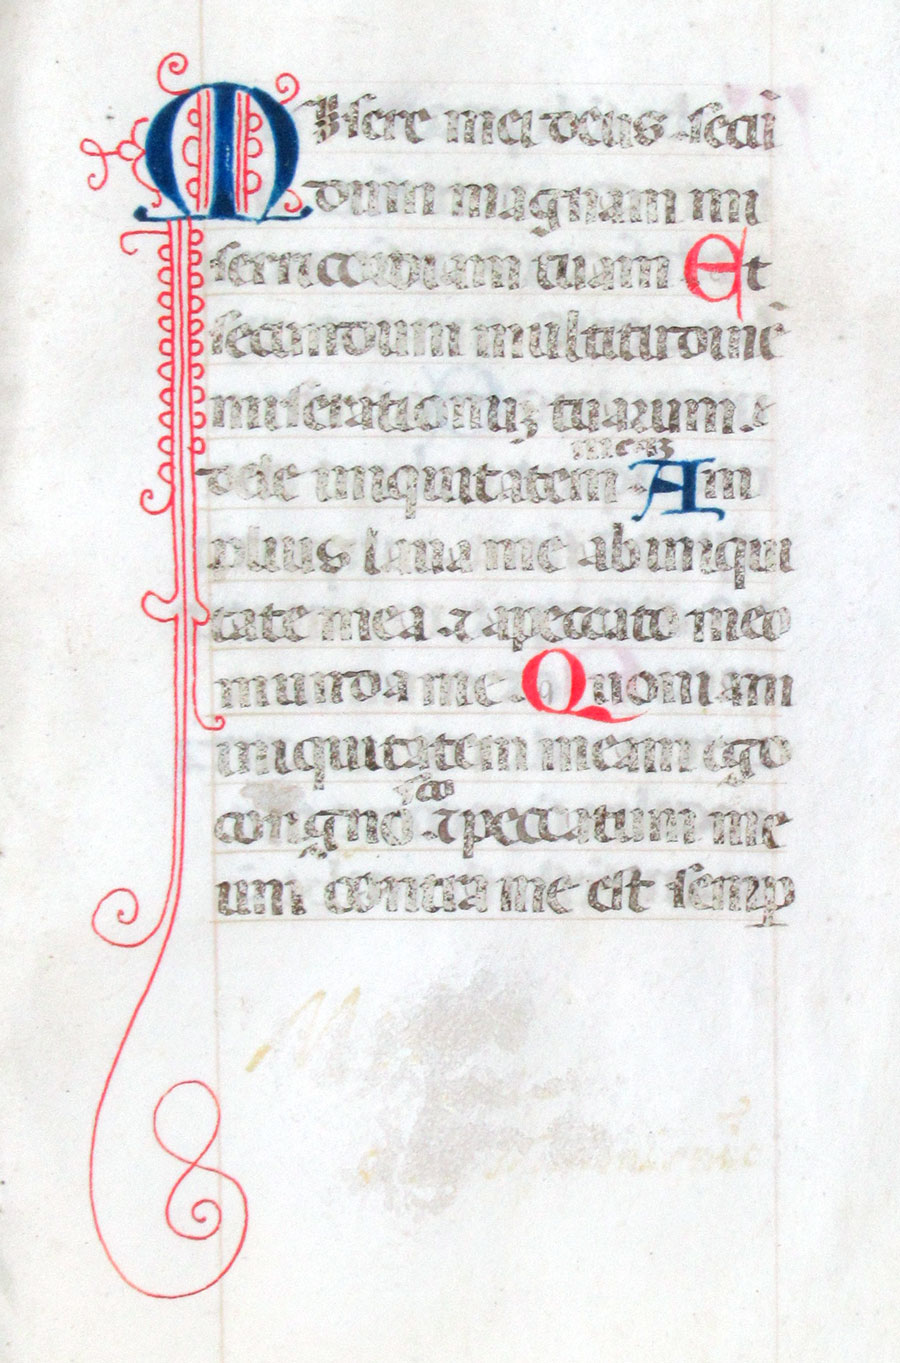 Misere mei deus secu̅
dum magnam mi
sericordiam tuam Et
secundum multitudine̅
miserationuꝫ tuarum .
dele iniquitatem meaꝫ Am
plius laua me ab iniqui
tate mea ⁊ a peccato meo
munda me . Quoniam
iniquitatem meam ego
congno̅sco ⁊ peccatum me
um contra me est semꝑ